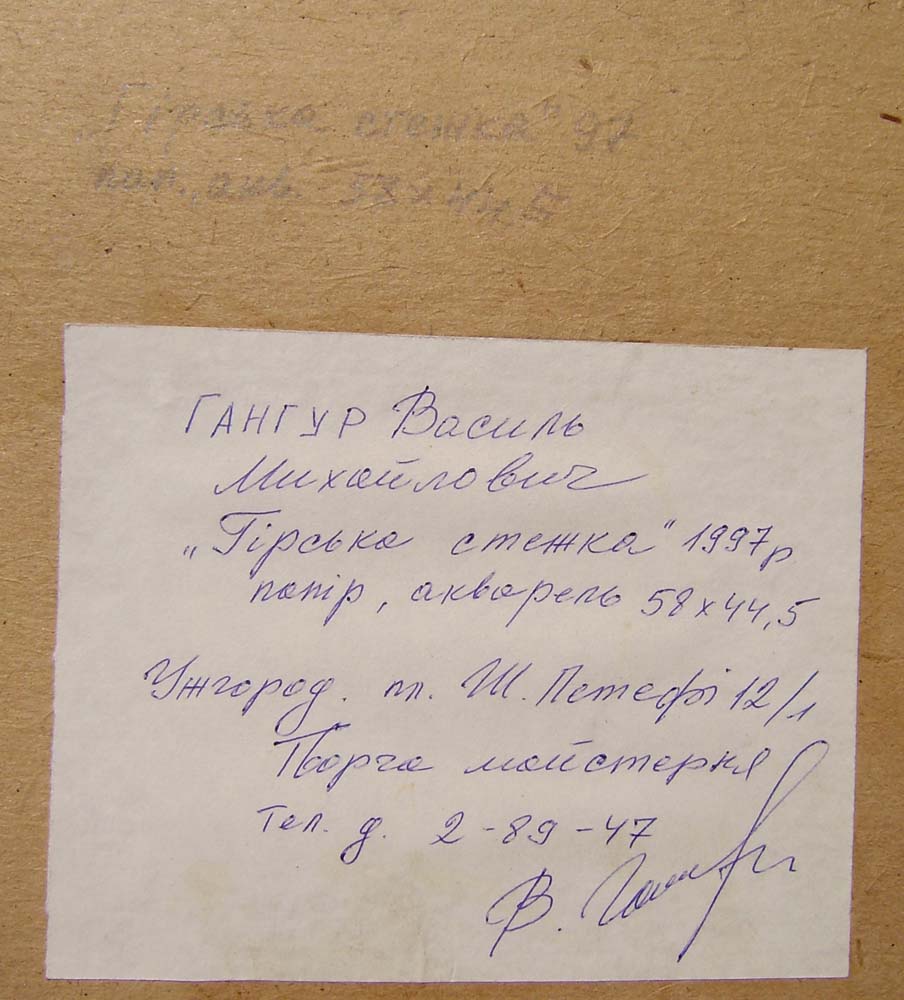 „Гірська стежка" 97
пап., акв. 58 х 44,5
ГАНГУР Василь
Михайлович
„Гірська стежка" 1997р
папір, акварель 58х44,5
Ужгород. пл. Ш. Петефі 12/1
Творча майстерня
тел. д. 2-89-47
В. Гангур